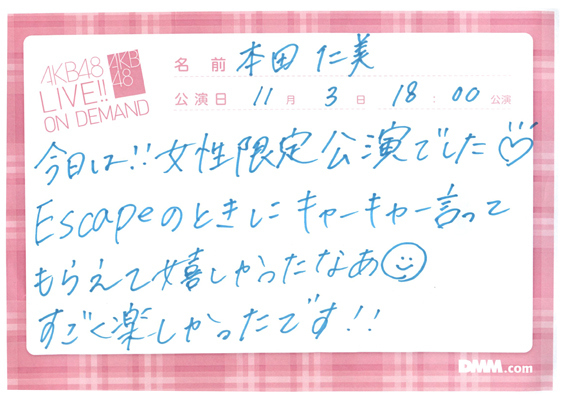 AKB48
LIVE!!
ON DEMAND
AKB
48
名前 本田 仁美
公演日 11月 3日 18:00 公演
今日は!!女性限定公演でした♡
Escapeのときしにキャーキャー言って
もらえて嬉しかったなあ☺
すごく楽しかったです!!
DMM.com